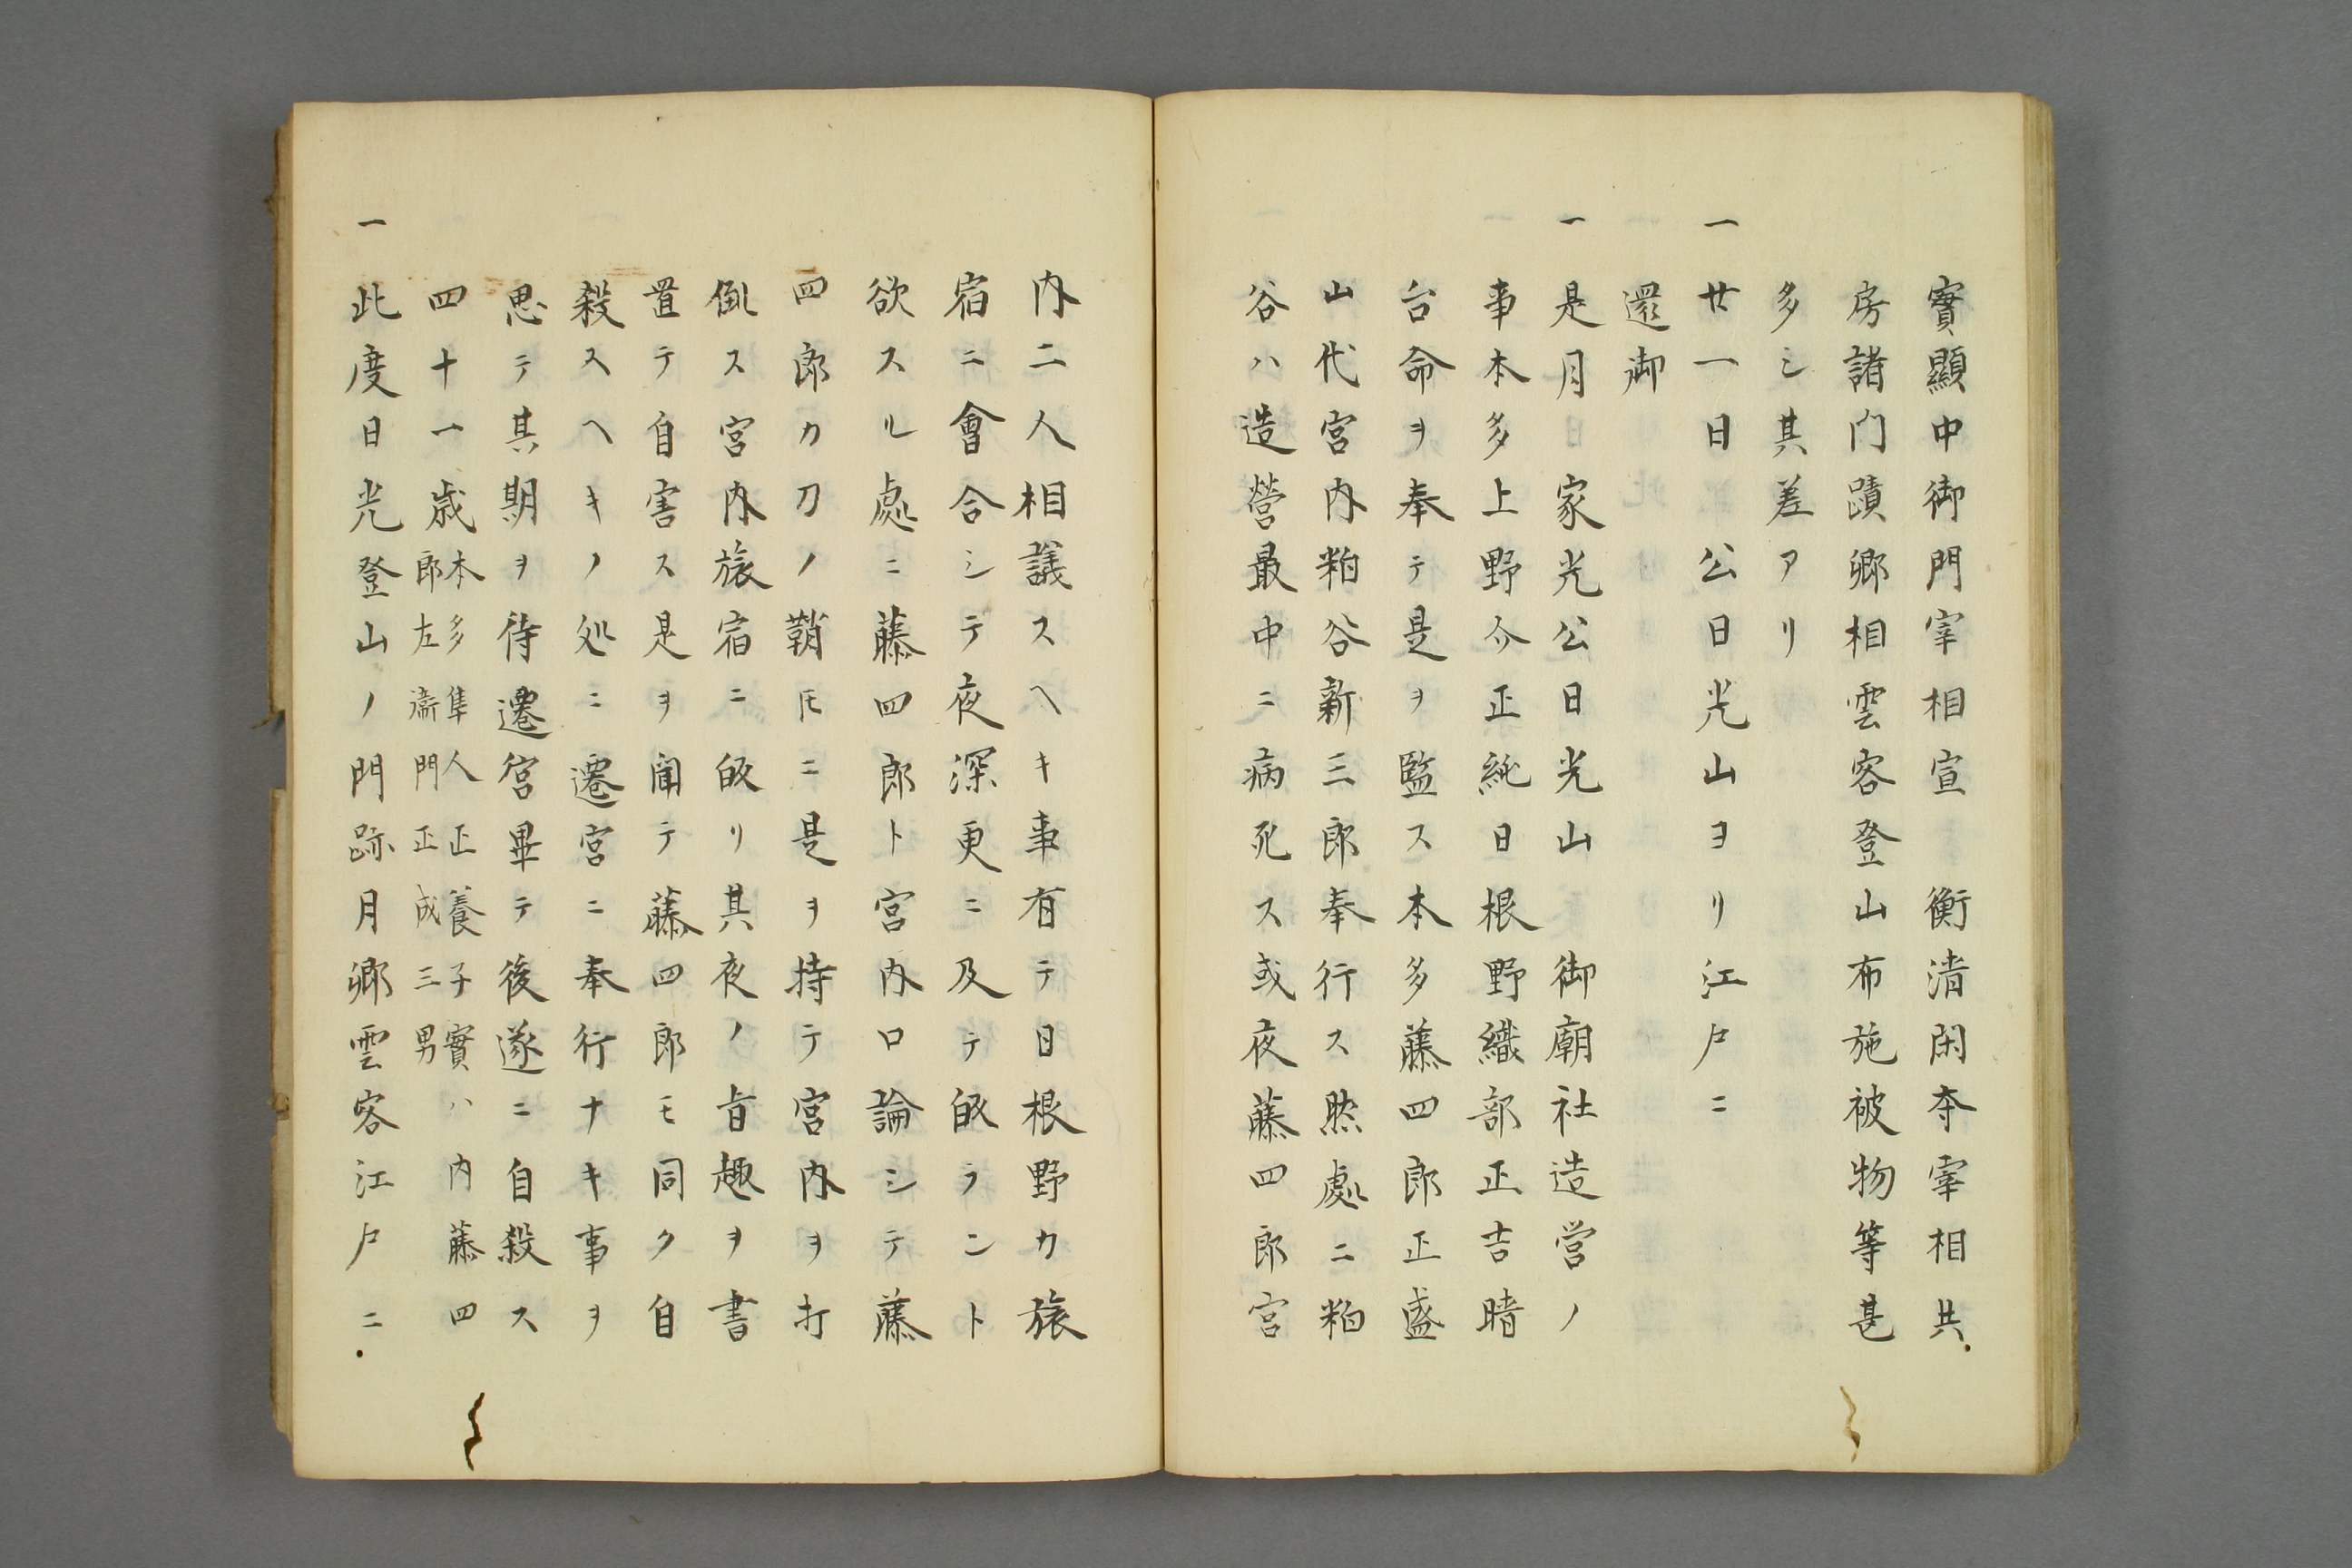 實顯中御門宰相宣 衡清閑寺宰相共
房諸門蹟卿相雲客登山布施被物等甚
多シ其差アリ
一 廿一日 公日光山ヨリ江戸ニ
還御
一 是月 家光公日光山 御廟社造営ノ
事本多上野介正純日根野織部正吉時
台命ヲ奉テ是ヲ監ス本多藤四郎正盛
山代宮内粕谷新三郎奉行ス然處ニ粕
谷ハ造營最中ニ病死ス或夜藤四郎宮
内二人相議スヘキ事有テ日根野カ旅
宿ニ會合シテ夜深更ニ及テ皈ラント
欲スル處ニ藤四郎ト宮内口論シテ藤
四郎カ刀ノ鞘トモニ是ヲ持テ宮内ヲ打
倒ス宮内旅宿ニ皈リ其夜ノ旨趣ヲ書
置テ自害ス是ヲ聞テ藤四郎モ同ク自
殺スヘキノ処ニ遷宮ニ奉行ナキ事ヲ
思テ其期ヲ待遷宮畢テ後遂ニ自殺ス
四十一歳本多隼人正養子實ハ内藤四
郎左衛門正成三男
一 此度日光登山ノ門跡月卿雲客江戸ニ